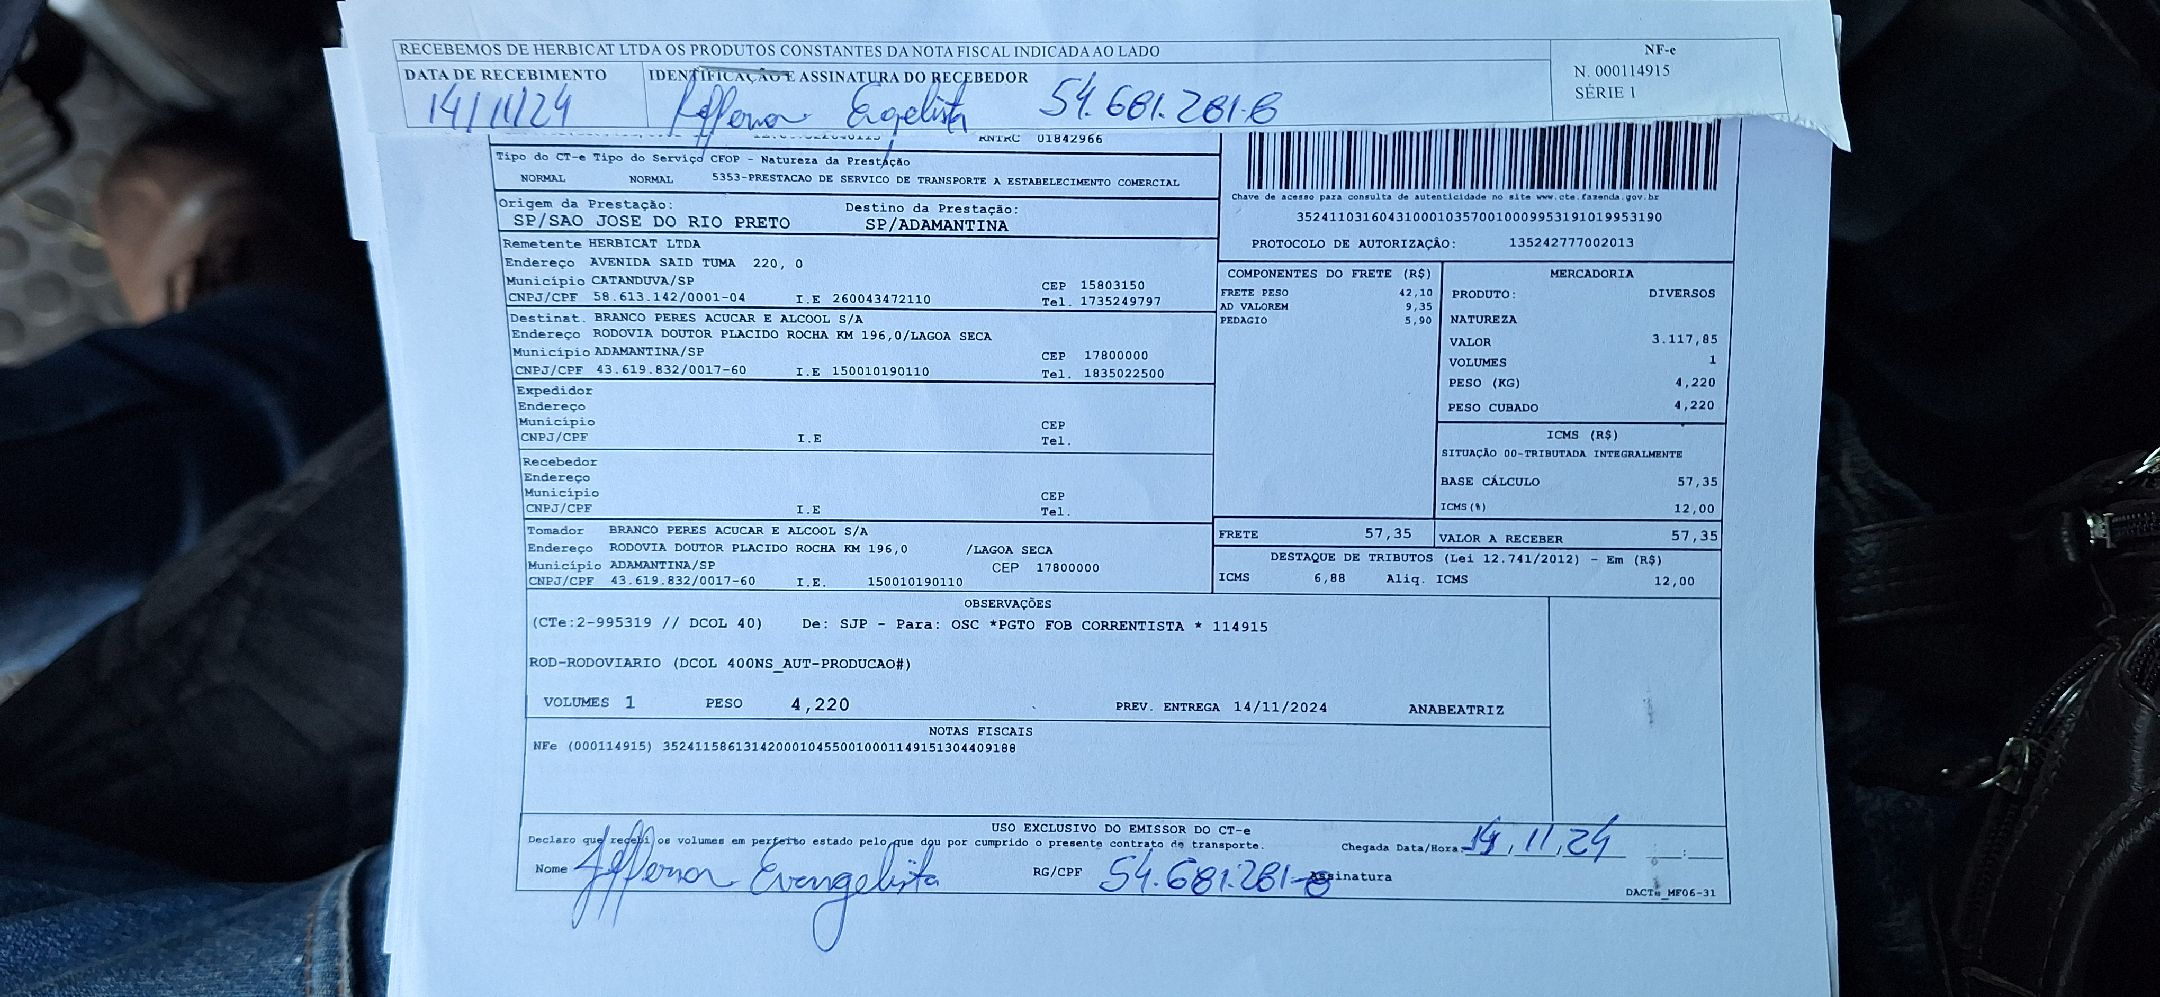 RECEBEMOS DE HERBICAT LTDA OS PRODUTOS CONSTANTES DA NOTA FISCAL INDICADA AO LADO
NF-e
N. 000114915
SÉRIE 1
DATA DE RECEBIMENTO IDENTIFICAÇÃO E ASSINATURA DO RECEBEDOR
14/11/24 Evgelista 54.681.281-8
RNTRC 01842966
Tipo do CT-e Tipo do Serviço CFOP - Natureza da Prestação
NORMAL NORMAL 5353-PRESTACAO DE SERVICO DE TRANSPORTE A ESTABELECIMENTO COMERCIAL
Origem da Prestação: Destino da Prestação:
SP/SAO JOSE DO RIO PRETO SP/ADAMANTINA
Chave de acesso para consulta de autenticidade no site www.cte.fazenda.gov.br
35241103160431000103570010009953191019953190
PROTOCOLO DE AUTORIZAÇÂO: 135242777002013
Remetente HERBICAT LTDA
Endereço AVENIDA SAID TUMA 220, 0
Município CATANDUVA/SP CEP 15803150
CNPJ/CPF 58.613.142/0001-04 I.E 260043472110 Tel. 1735249797
Destinat. BRANCO PERES ACUCAR E ALCOOL S/A
Endereço RODOVIA DOUTOR PLACIDO ROCHA KM 196,0/LAGOA SECA
Município ADAMANTINA/SP CEP 17800000
CNPJ/CPF 43.619.832/0017-60 I.E 150010190110 Tel. 1835022500
Expedidor
Endereço
Município CEP
CNPJ/CPF I.E Tel.
Recebedor
Endereço
Município CEP
CNPJ/CPF I.E Tel.
Tomador BRANCO PERES ACUCAR E ALCOOL S/A
Endereço RODOVIA DOUTOR PLACIDO ROCHA KM 196,0 /LAGOA SECA
Município ADAMANTINA/SP CEP 17800000
CNPJ/CPF 43.619.832/0017-60 I.E. 150010190110
COMPONENTES DO FRETE (R$)
FRETE PESO 42,10
AD VALOREM 9,35
PEDAGIO 5,90
MERCADORIA
PRODUTO: DIVERSOS
NATUREZA
VALOR 3.117,85
VOLUMES 1
PESO (KG) 4,220
PESO CUBADO 4,220
ICMS (R$)
SITUAÇÃO 00-TRIBUTADA INTEGRALMENTE
BASE CÁLCULO 57,35
ICMS(%) 12,00
FRETE 57,35 VALOR A RECEBER 57,35
DESTAQUE DE TRIBUTOS (Lei 12.741/2012) - Em (R$)
ICMS 6,88 Aliq. ICMS 12,00
OBSERVAÇÕES
(CTe:2-995319 // DCOL 40) De: SJP - Para: OSC *PGTO FOB CORRENTISTA * 114915
ROD-RODOVIARIO (DCOL 400NS_AUT-PRODUCAO#)
VOLUMES 1 PESO 4,220 PREV. ENTREGA 14/11/2024 ANABEATRIZ
NOTAS FISCAIS
NFe (000114915) 35241158613142000104550010001149151304409188
USO EXCLUSIVO DO EMISSOR DO CT-e
Declaro que recebi os volumes em perfeito estado pelo que dou por cumprido o presente contrato de transporte. Chegada Data/Hora: 14,11,24 __:__
Nome Jefferson Evangelista RG/CPF 54.681.281-8 Assinatura
DACTe_MF06-31